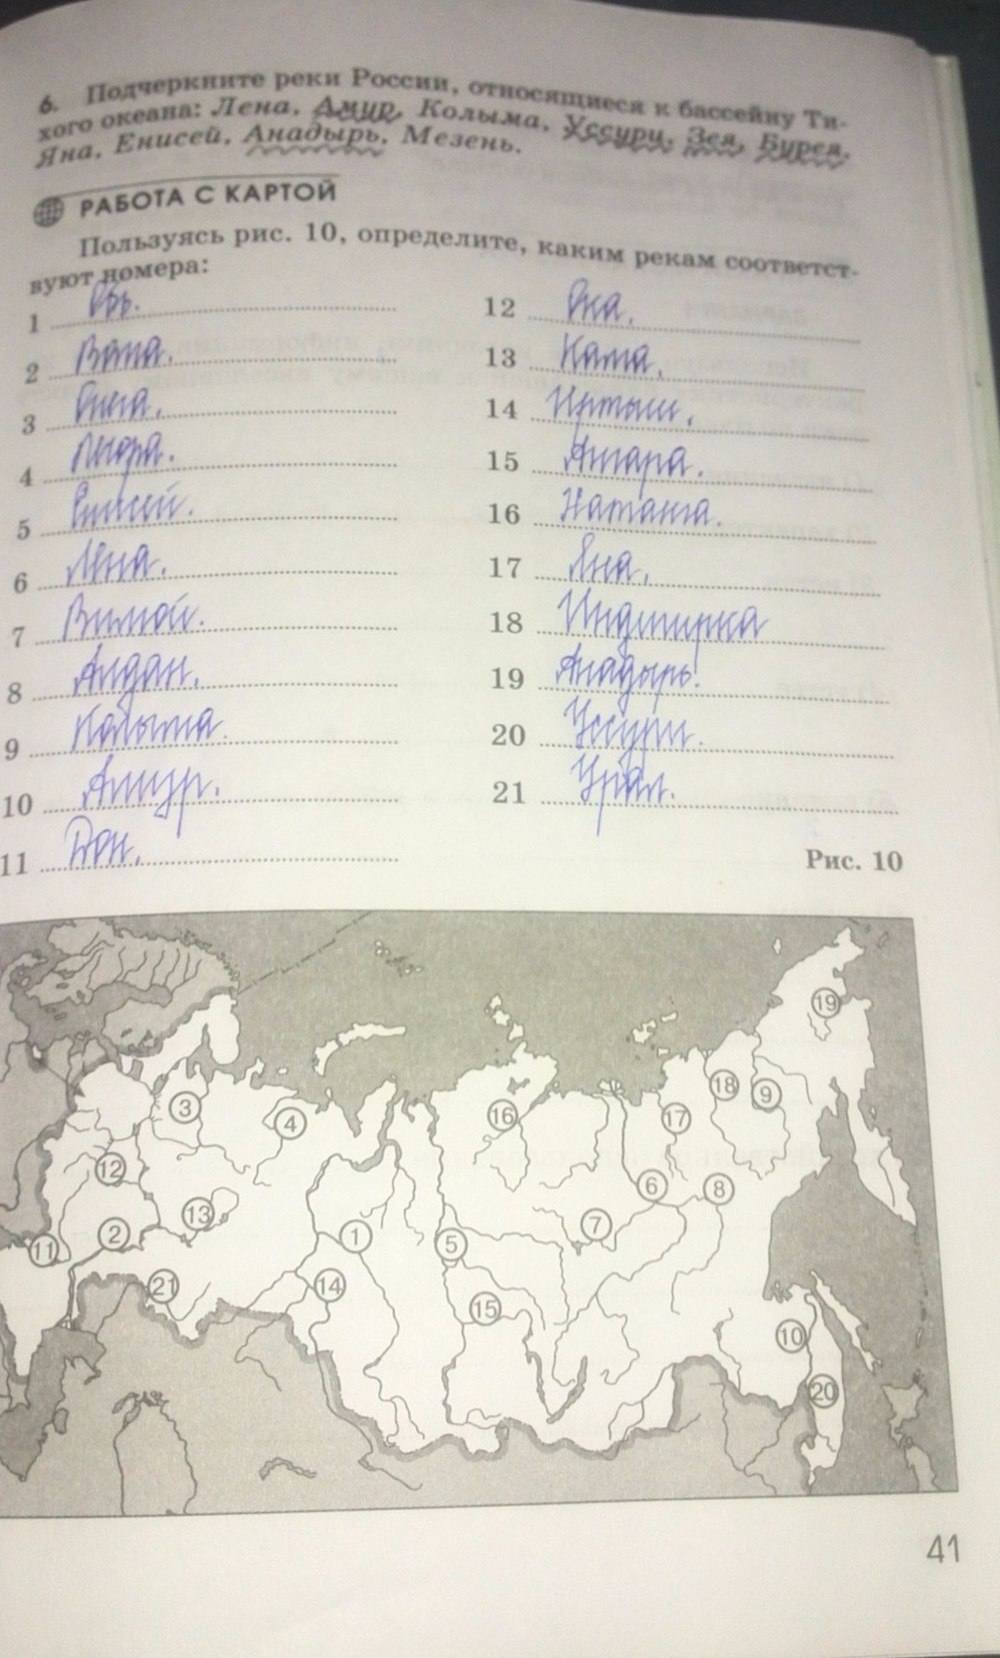 6. Подчеркните реки России, относящиеся к бассейну Ти-
хого океана: Лена, Амур, Колыма, Уссури, Зея, Бурея,
Яна, Енисей, Анадырь, Мезень.
РАБОТА С КАРТОЙ
Пользуясь рис. 10, определите, каким рекам соответст-
вуют номера:
1 Обь.
2 Волга.
3 Онега.
4 Печора.
5 Енисей.
6 Лена.
7 Вилюй.
8 Алдан.
9 Колыма.
10 Амур.
11 Дон.
12 Ока.
13 Кама.
14 Иртыш.
15 Ангара.
16 Хатанга.
17 Яна.
18 Индигирка
19 Анадырь.
20 Уссури.
21 Урал.
Рис. 10
19
3
4
16
17
18
9
12
13
6
8
11
2
1
5
7
21
14
15
10
20
41